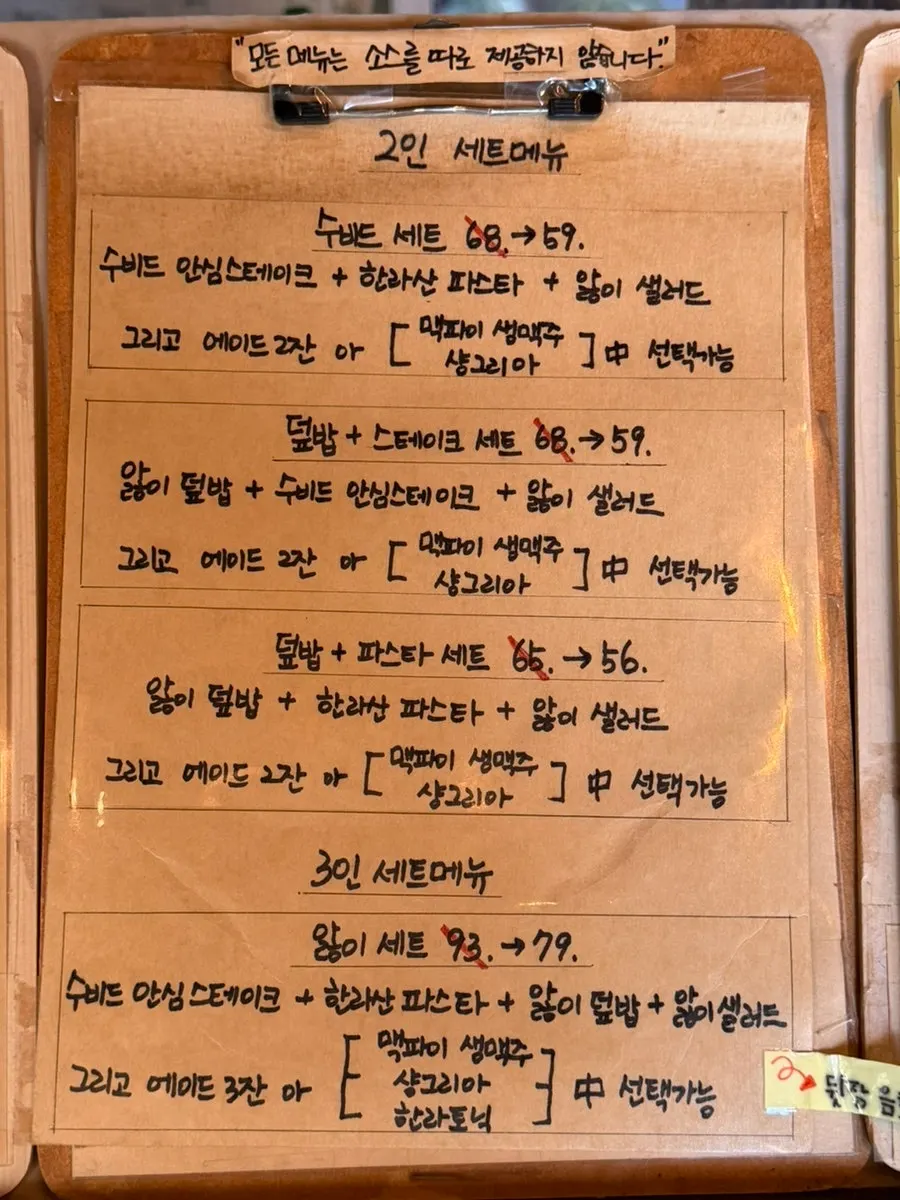 "모든 메뉴는 소스를 따로 제공하지 않습니다."
2인 세트메뉴
수비드 세트 68. → 59.
수비드 안심스테이크 + 한라산 파스타 + 앓이 샐러드
그리고 에이드 2잔 아 [ 맥파이 생맥주
샹그리아 ] 中 선택가능
덮밥 + 스테이크 세트 68. → 59.
앓이 덮밥 + 수비드 안심스테이크 + 앓이 샐러드
그리고 에이드 2잔 아 [ 맥파이 생맥주
샹그리아 ] 中 선택가능
덮밥 + 파스타 세트 65. → 56.
앓이 덮밥 + 한라산 파스타 + 앓이 샐러드
그리고 에이드 2잔 아 [ 맥파이 생맥주
샹그리아 ] 中 선택가능
3인 세트메뉴
앓이 세트 93. → 79.
수비드 안심스테이크 + 한라산 파스타 + 앓이 덮밥 + 앓이 샐러드
그리고 에이드 3잔 아 [ 맥파이 생맥주
샹그리아
한라토닉 ] 中 선택가능
뒷장